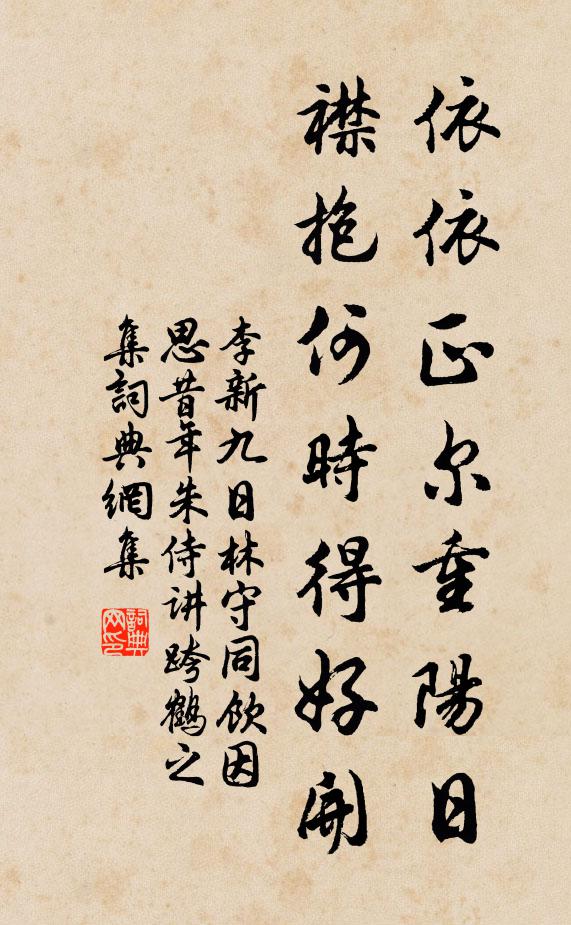 依依正尔重陽日
襟抱何時得好開
李新九日林守同飲因
思昔年朱侍讲跨鶴之
集詞典網集
詞典
网印